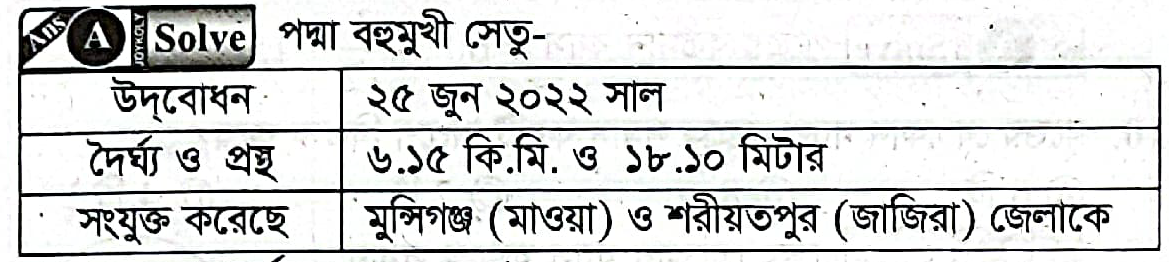 Ans A JOYKOLY Solve পদ্মা বহুমুখী সেতু-
উদ্‌বোধন ২৫ জুন ২০২২ সাল
দৈর্ঘ্য ও প্রস্থ ৬.১৫ কি.মি. ও ১৮.১০ মিটার
সংযুক্ত করেছে মুন্সিগঞ্জ (মাওয়া) ও শরীয়তপুর (জাজিরা) জেলাকে